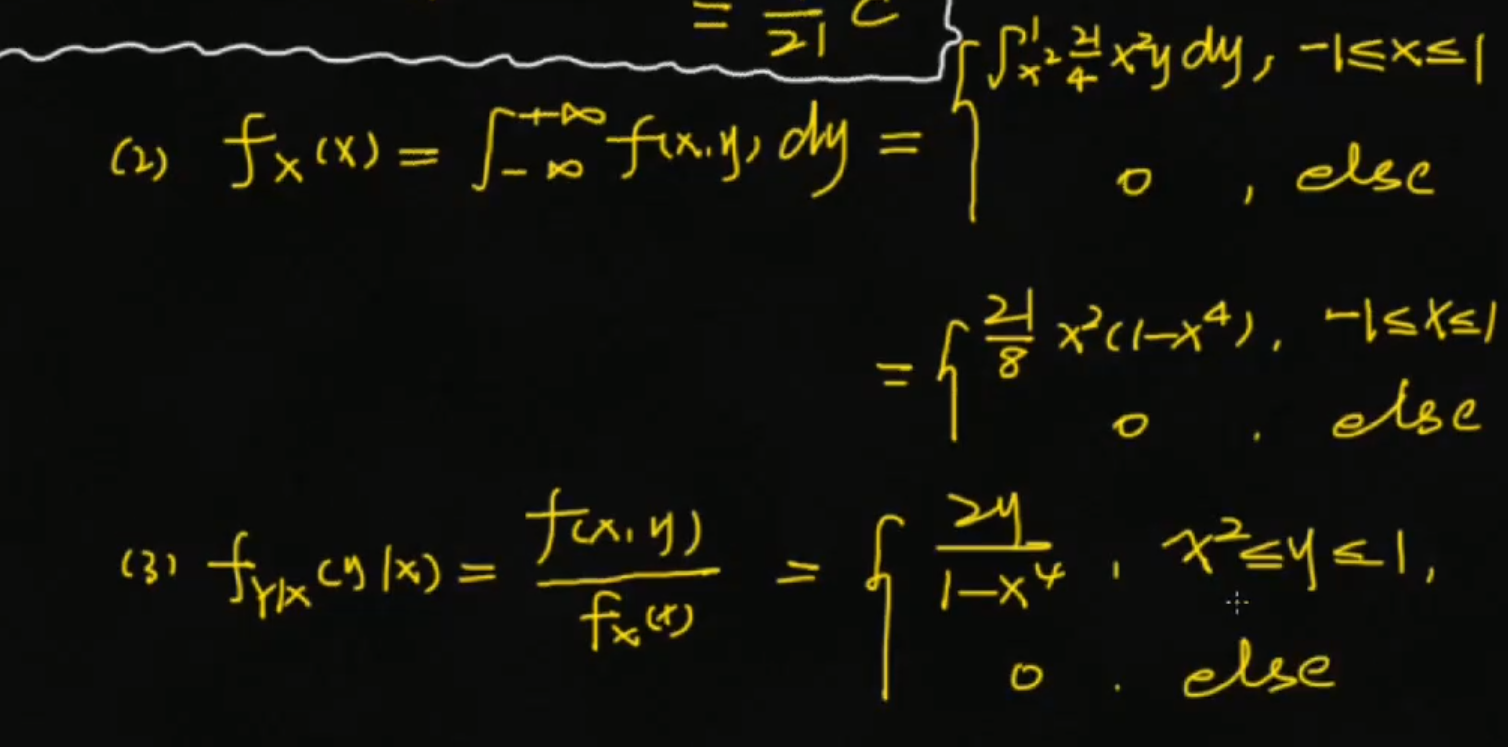 = —/21 c
(2) f_X(x) = ∫_{-∞}^{+∞} f(x,y) dy = { ∫_{x²}^{1} 21/4 x²y dy, -1≤x≤1
0 , else
= { 21/8 x²(1-x⁴), -1≤x≤1
0 . else
(3) f_{Y|X}(y|x) = f(x,y)/f_X(x) = { 2y/(1-x⁴) , x²≤y≤1,
0 . else